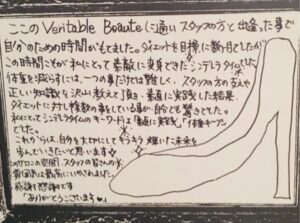 ここの Veritable Beaute に通い スタッフの方と出逢った事で
自分のための時間がもてました。ダイエットを目標に数ヶ月でしたが
この時間こそが私にとって 素敵に変身できたシンデレラタイムでした
体重を減らすには、一つの事だけでは難しく、スタッフの方の支えや
正しい知識を沢山教えて頂き、素直に実践した結果、
ダイエットに対して複数の事をしている事が自分でも驚きでした。
私にとってシンデレラタイムのキーワードは「素直に実践」「体重キープ」
でした。
これからは、自分を大切にして キラキラ輝いた未来を
歩んでいきたいと思います
このサロンの空間、スタッフの皆さんの
雰囲気は最高にいやされました。
感謝 感謝です
「ありがとうございます」